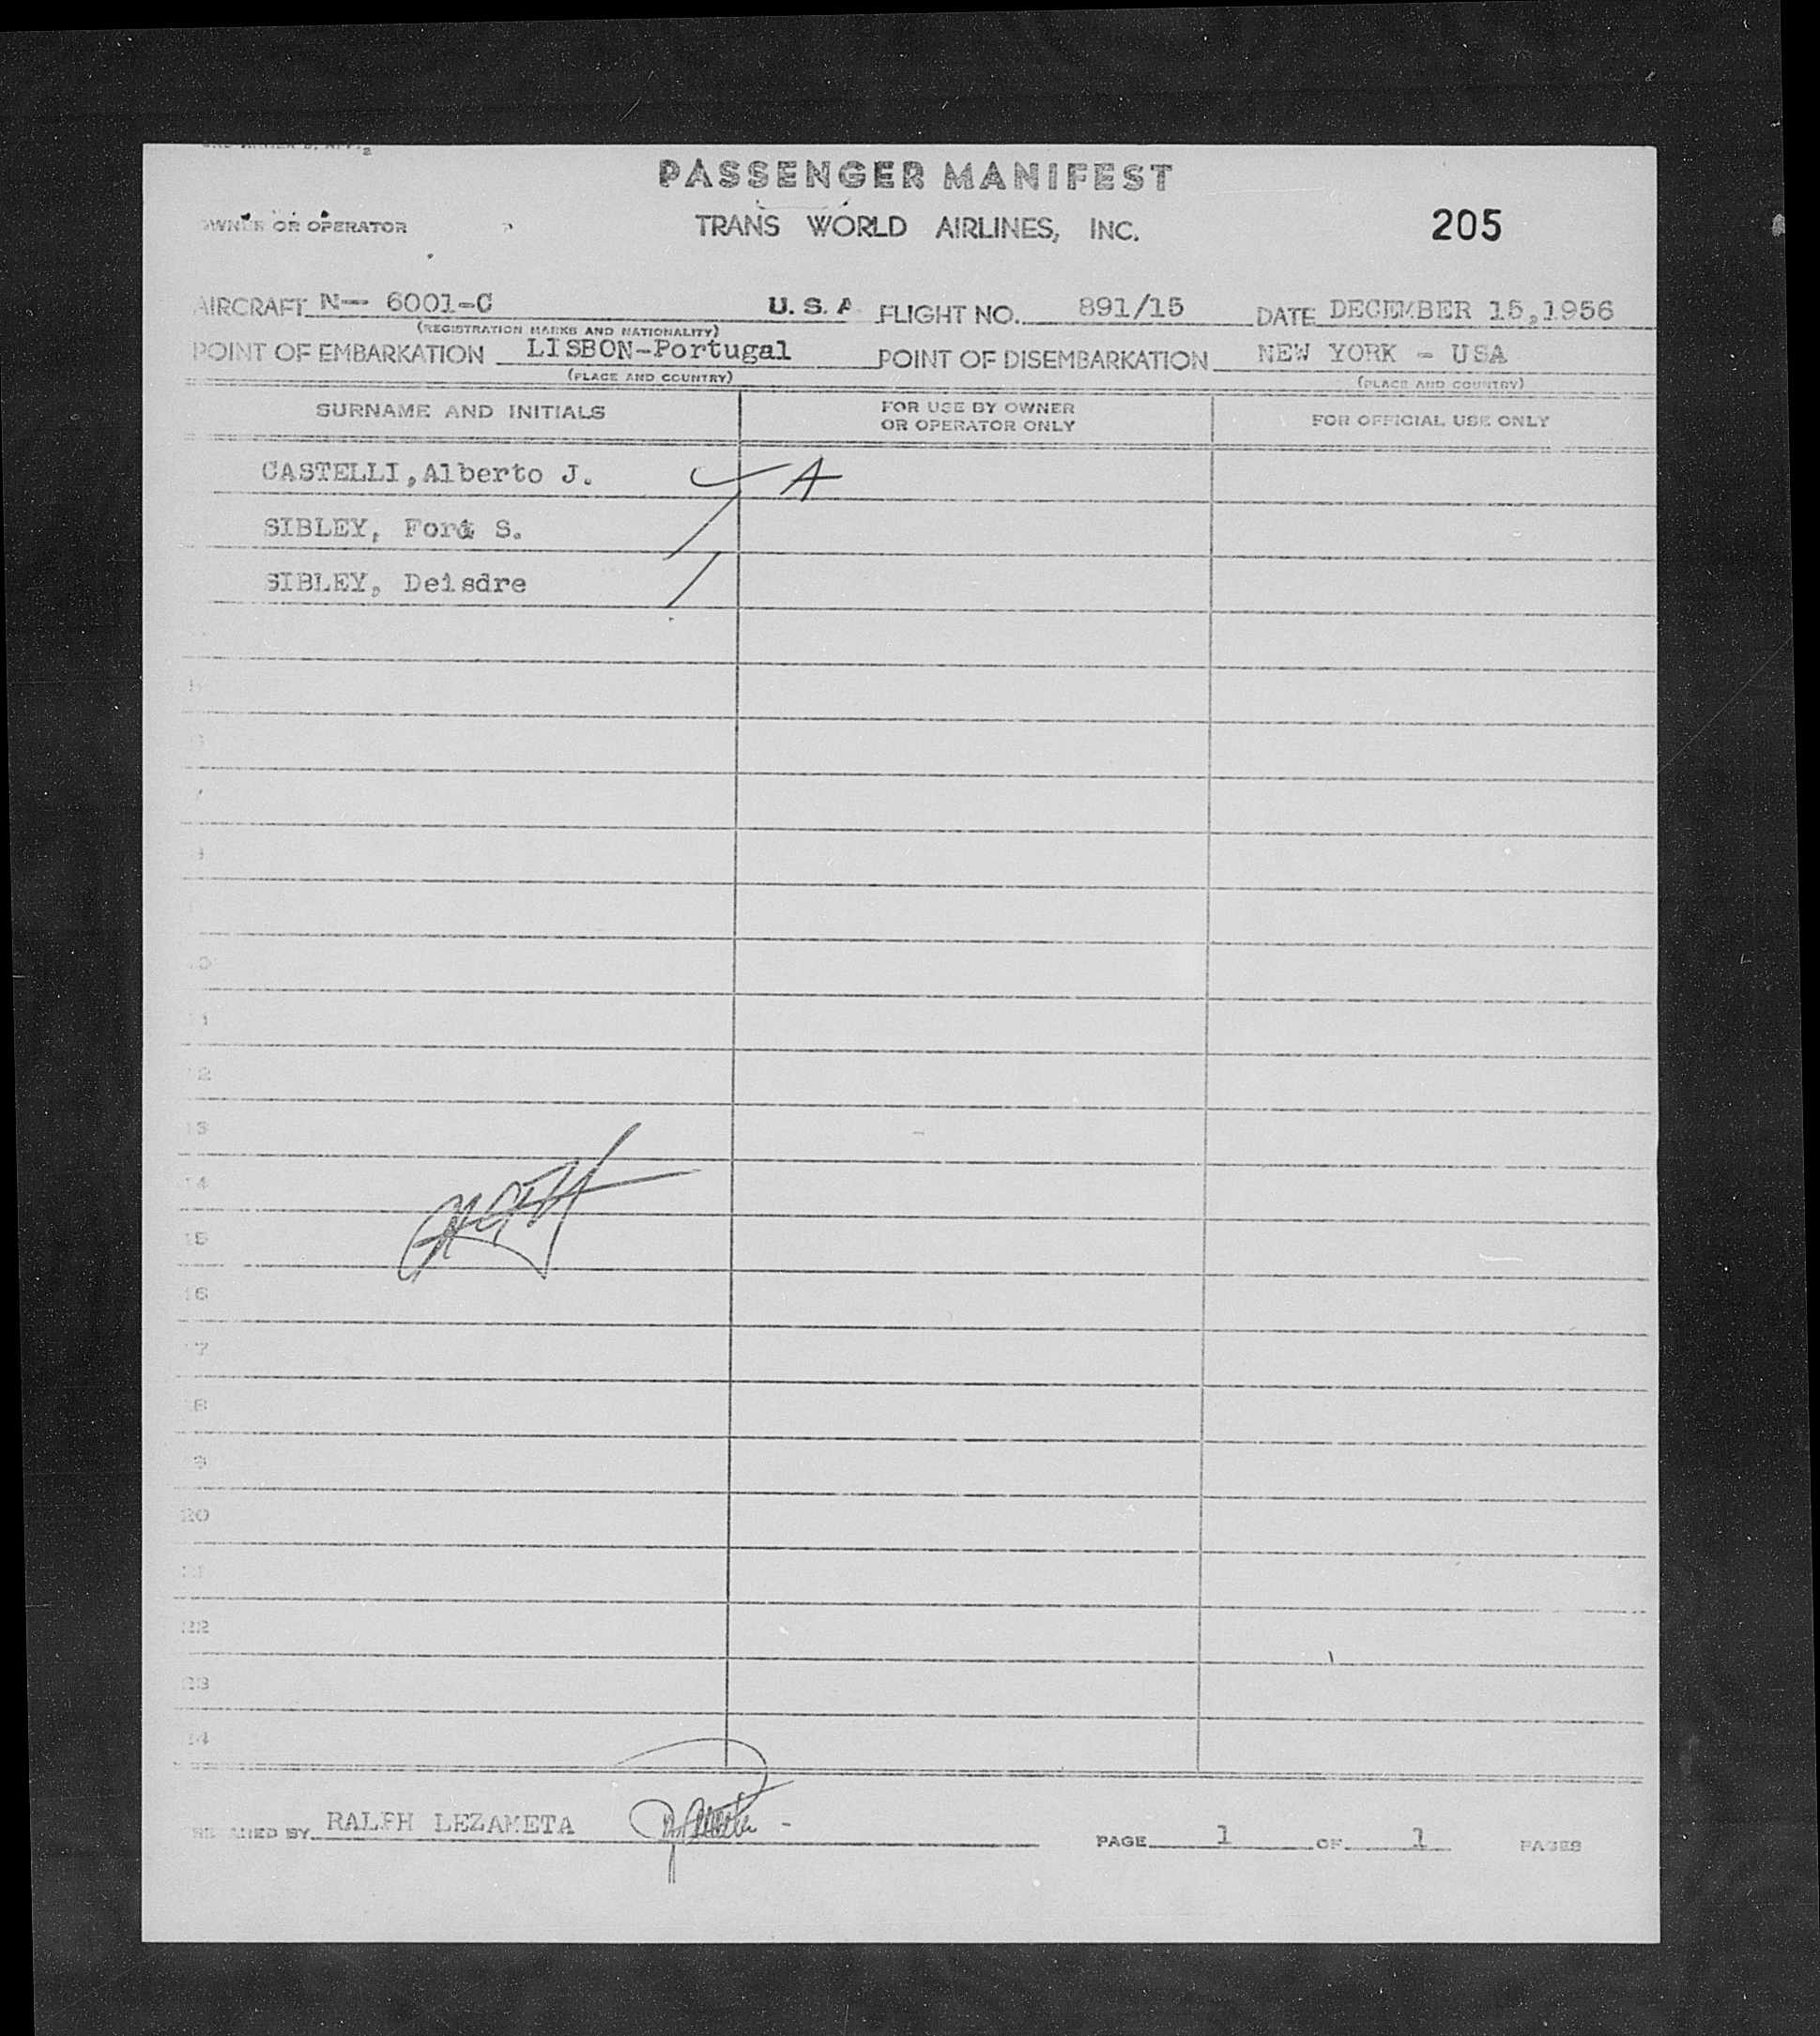 PASSENGER MANIFEST
OWNER OR OPERATOR TRANS WORLD AIRLINES, INC. 205
AIRCRAFT N— 6001-C U. S. A FLIGHT NO. 891/15 DATE DECEMBER 15,1956
(REGISTRATION MARKS AND NATIONALITY)
POINT OF EMBARKATION LISBON-Portugal POINT OF DISEMBARKATION NEW YORK - USA
(PLACE AND COUNTRY) (PLACE AND COUNTRY)
SURNAME AND INITIALS FOR USE BY OWNER OR OPERATOR ONLY FOR OFFICIAL USE ONLY
CASTELLI,Alberto J. A
SIBLEY, Ford S.
SIBLEY, Deisdre
12
13
14
15
16
17
18
20
22
23
RALPH LEZAMETA PAGE 1 OF 1 PAGES